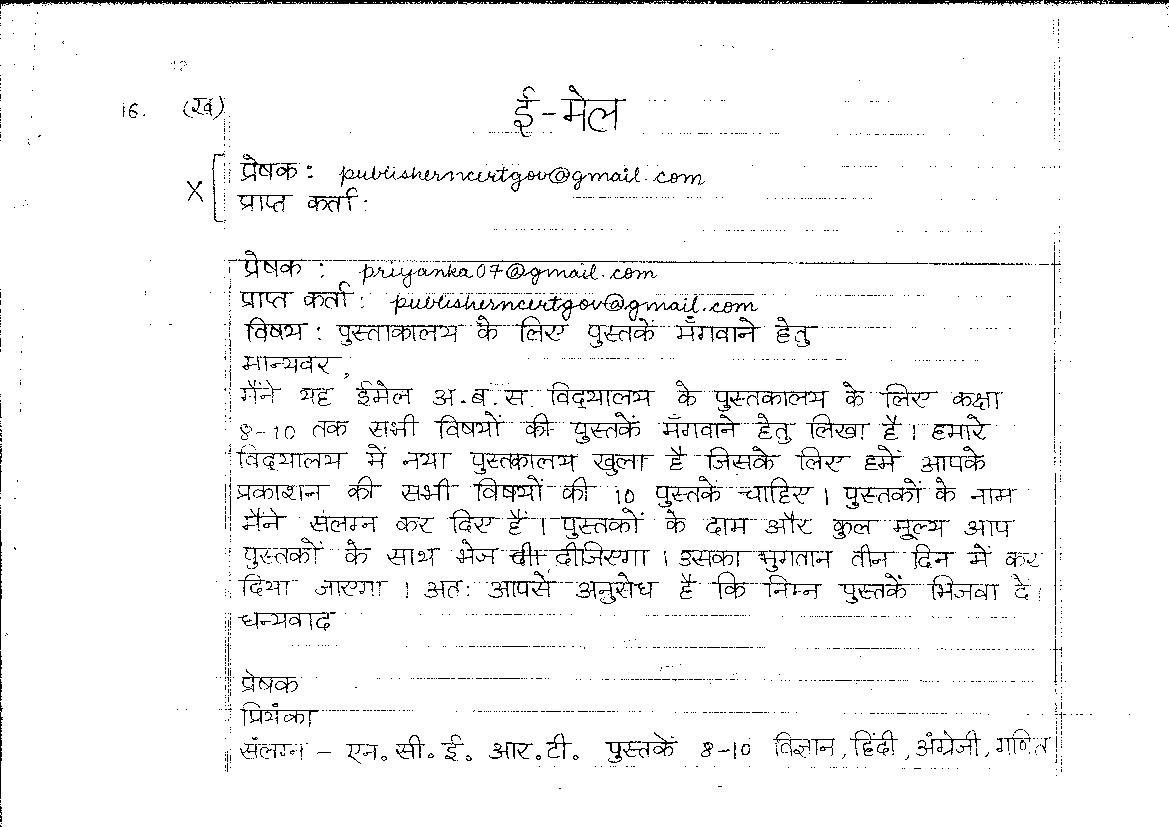 16. (ख) ई-मेल
X प्रेषक : publisherncertgov@gmail.com
प्राप्त कर्ता :
प्रेषक : priyanka07@gmail.com
प्राप्त कर्ता : publisherncertgov@gmail.com
विषय : पुस्ताकालय के लिए पुस्तकें मँगवाने हेतु
मान्यवर,
मैंने यह ईमेल अ.ब.स. विद्यालय के पुस्तकालय के लिए कक्षा
8-10 तक सभी विषयों की पुस्तकें मँगवाने हेतु लिखा है। हमारे
विद्यालय में नया पुस्तकालय खुला है जिसके लिए हमें आपके
प्रकाशन की सभी विषयों की 10 पुस्तकें चाहिए। पुस्तकों के नाम
मैंने संलग्न कर दिए हैं। पुस्तकों के दाम और कुल मूल्य आप
पुस्तकों के साथ भेज दीजिएगा। उसका भुगतान तीन दिन में कर
दिया जाएगा। अतः आपसे अनुरोध है कि निम्न पुस्तकें भिजवा दे।
धन्यवाद
प्रेषक
प्रियंका
संलग्न - एन. सी. ई. आर. टी. पुस्तकें 8-10 विज्ञान, हिंदी, अंग्रेजी, गणित